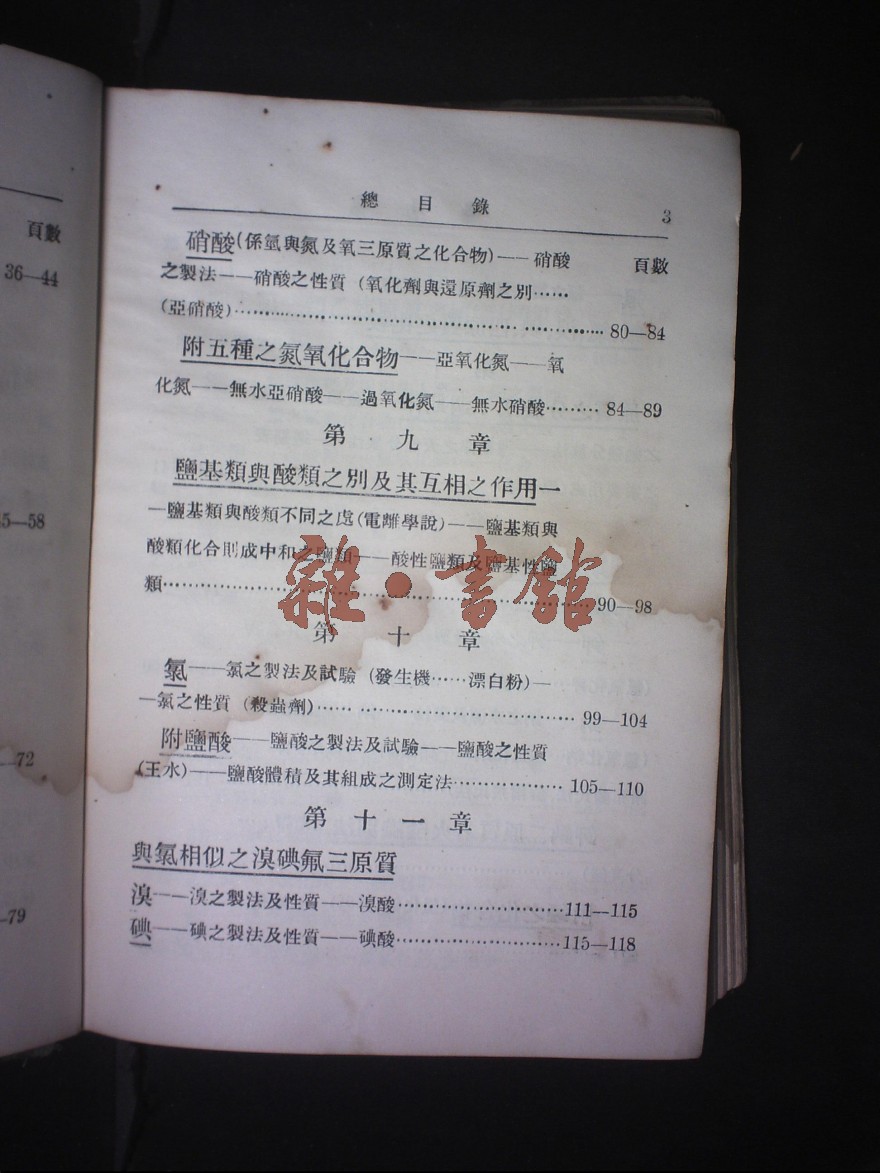 頁數
36—44
5—58
—72
—79
總目錄 3
硝酸(係氫與氮及氧三原質之化合物)——硝酸 頁數
之製法——硝酸之性質 (氧化劑與還原劑之別……
(亞硝酸)……………………………………………… 80—84
附五種之氮氧化合物——亞氧化氮——氧
化氮——無水亞硝酸——過氧化氮——無水硝酸……… 84—89
第九章
鹽基類與酸類之別及其互相之作用—
—鹽基類與酸類不同之處(電離學說)——鹽基類與
酸類化合則成中和之鹽類——酸性鹽類及鹽基性鹽
類………………………………………………………90—98
第十章
氯——氯之製法及試驗 (發生機……漂白粉)—
—氯之性質 (殺蟲劑)…… ………………………………… 99—104
附鹽酸——鹽酸之製法及試驗——鹽酸之性質
(王水)——鹽酸體積及其組成之測定法……………… 105—110
第十一章
與氯相似之溴碘氟三原質
溴——溴之製法及性質——溴酸………………………111—115
碘——碘之製法及性質——碘酸………………………115—118
雜·書館